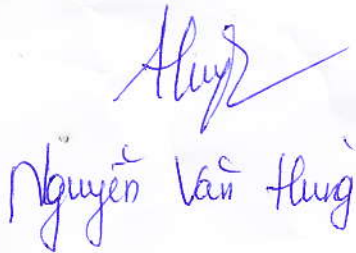 Nguyễn Văn Hùng